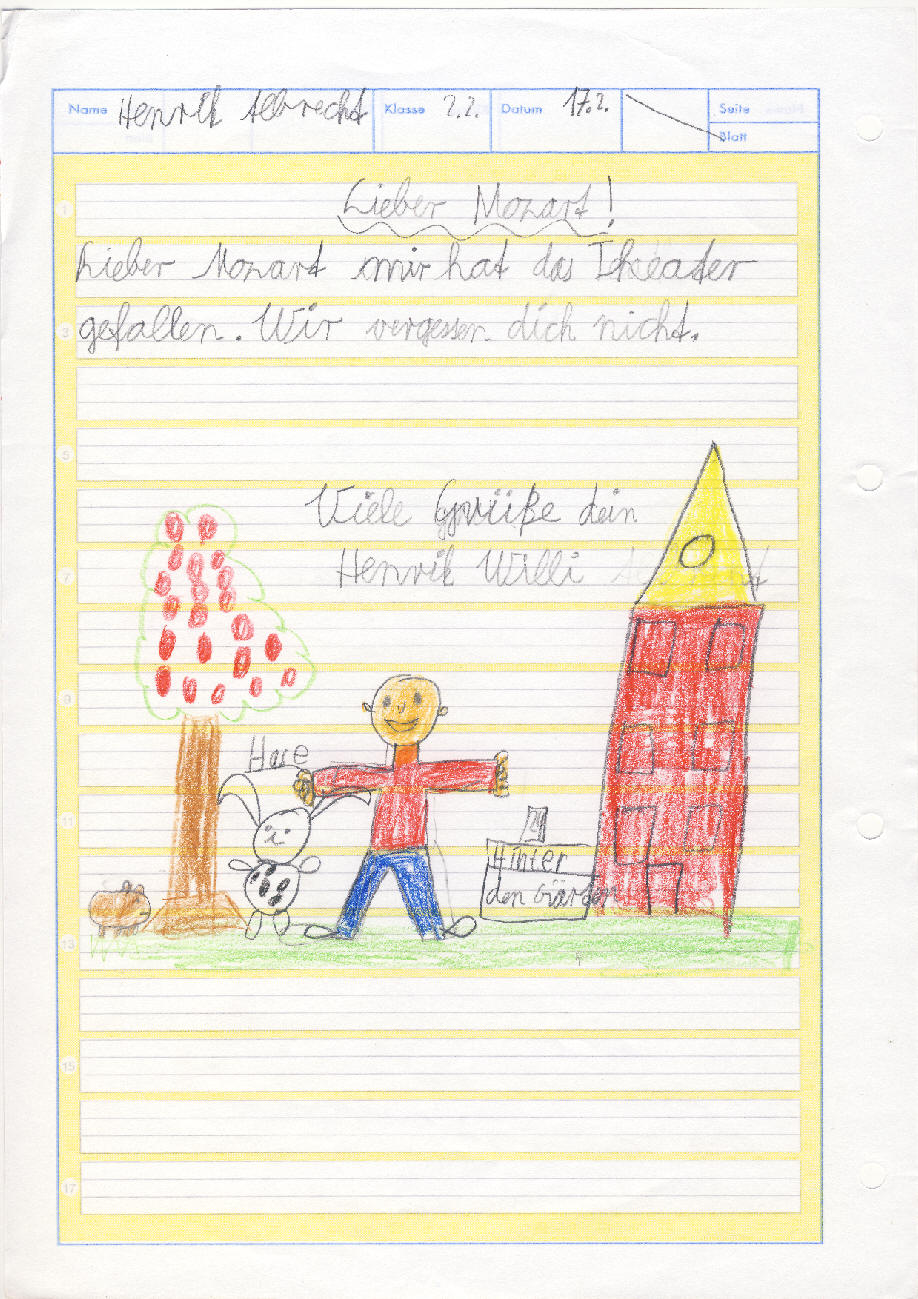 Name Henrik Albrecht Klasse 2.2. Datum 17.2. Seite
Blatt
1
Lieber Mozart!
Lieber Mozart mir hat das Theater
3
gefallen. Wir vergessen dich nicht.
5
Viele Grüße dein
7
Henrik Willi
9
Hase
11
29
Hinter
den Gärten
13
15
17